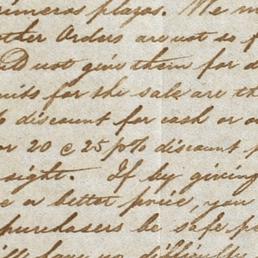 primeras plazas. We
other Orders are not so
not give them for
for the sale are
discount for cash or
or 20 @ 25 p% discount
sight. If by giving
a better price, you
purchasers be safe
no difficulty